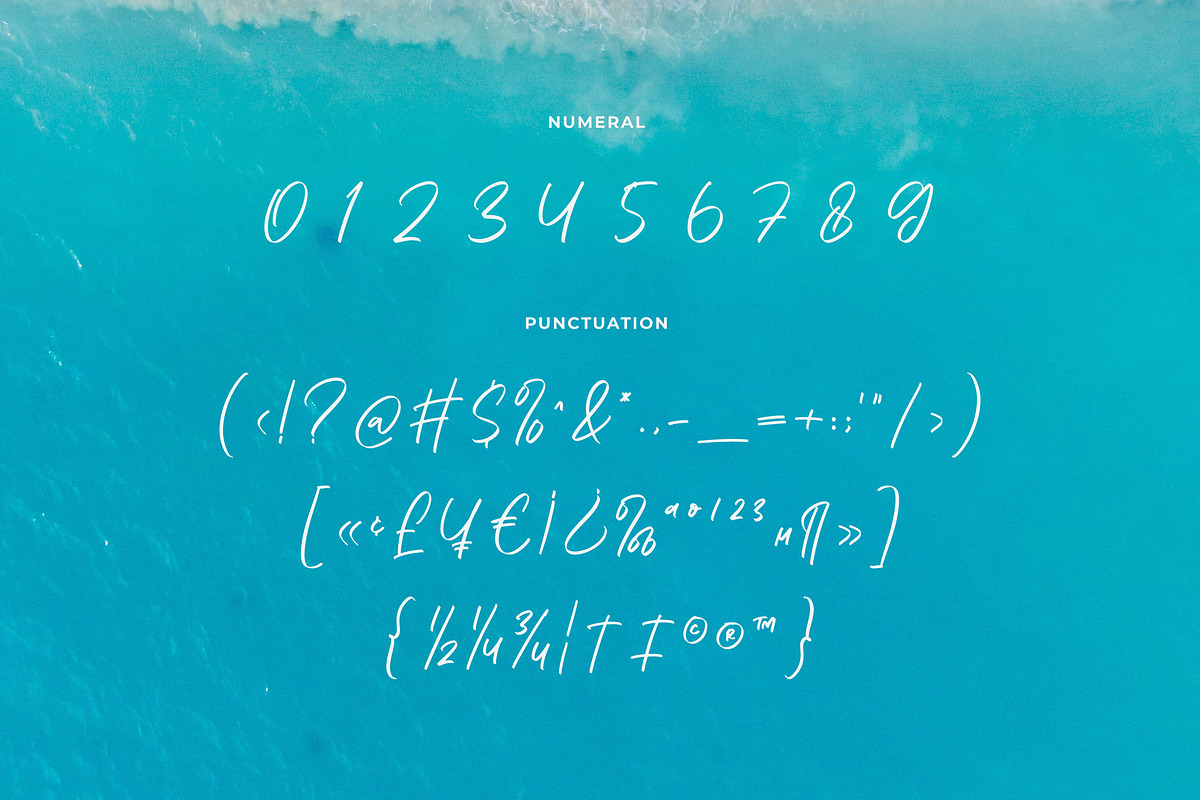 NUMERAL
0 1 2 3 4 5 6 7 8 9
PUNCTUATION
( ‹ ! ? @ # $ % ^ & * . , - _ = + : ; ' " / › )
[ « ¢ £ ¥ € ¡ ¿ ‰ ª º ¹ ² ³ µ ¶ » ]
{ ½ ¼ ¾ ¦ † ‡ © ® ™ }